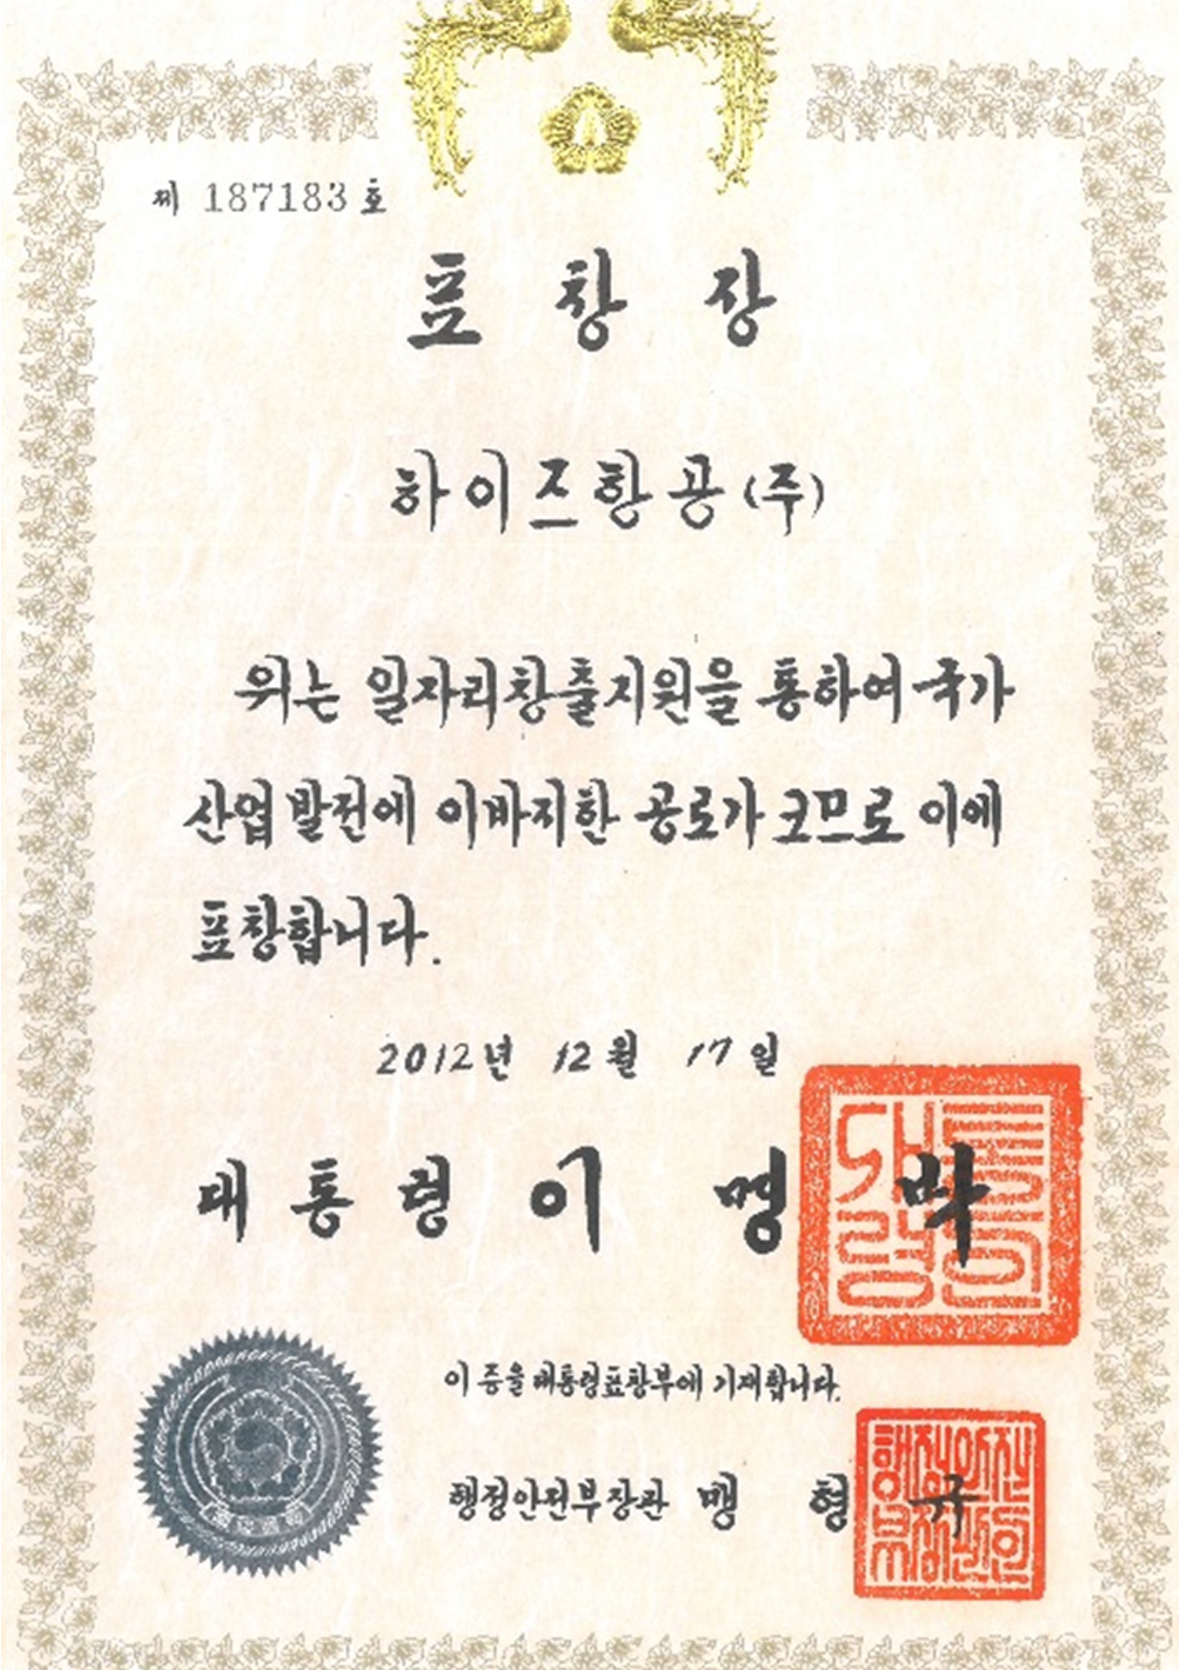 제 187183 호
표 창 장
하이즈항공(주)
위는 일자리창출지원을 통하여 국가
산업발전에 이바지한 공로가 크므로 이에
표창합니다.
2012년 12월 17일
대 통 령 이 명 박
대통령의인
이 증을 대통령표창부에 기재합니다.
행정안전부장관 맹 형 규
행정안전부장관의인